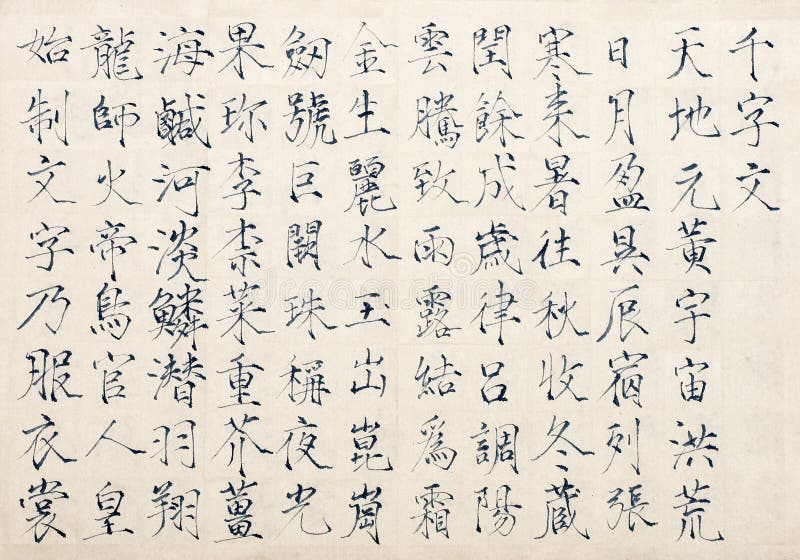 千字文
天地元黃宇宙洪荒
日月盈昃辰宿列張
寒来暑往秋收冬藏
閏餘成歲律呂調陽
雲騰致雨露結爲霜
金生麗水玉出崑崗
劔號巨闕珠稱夜光
果珎李柰菜重芥薑
海鹹河淡鱗潛羽翔
龍師火帝鳥官人皇
始制文字乃服衣裳